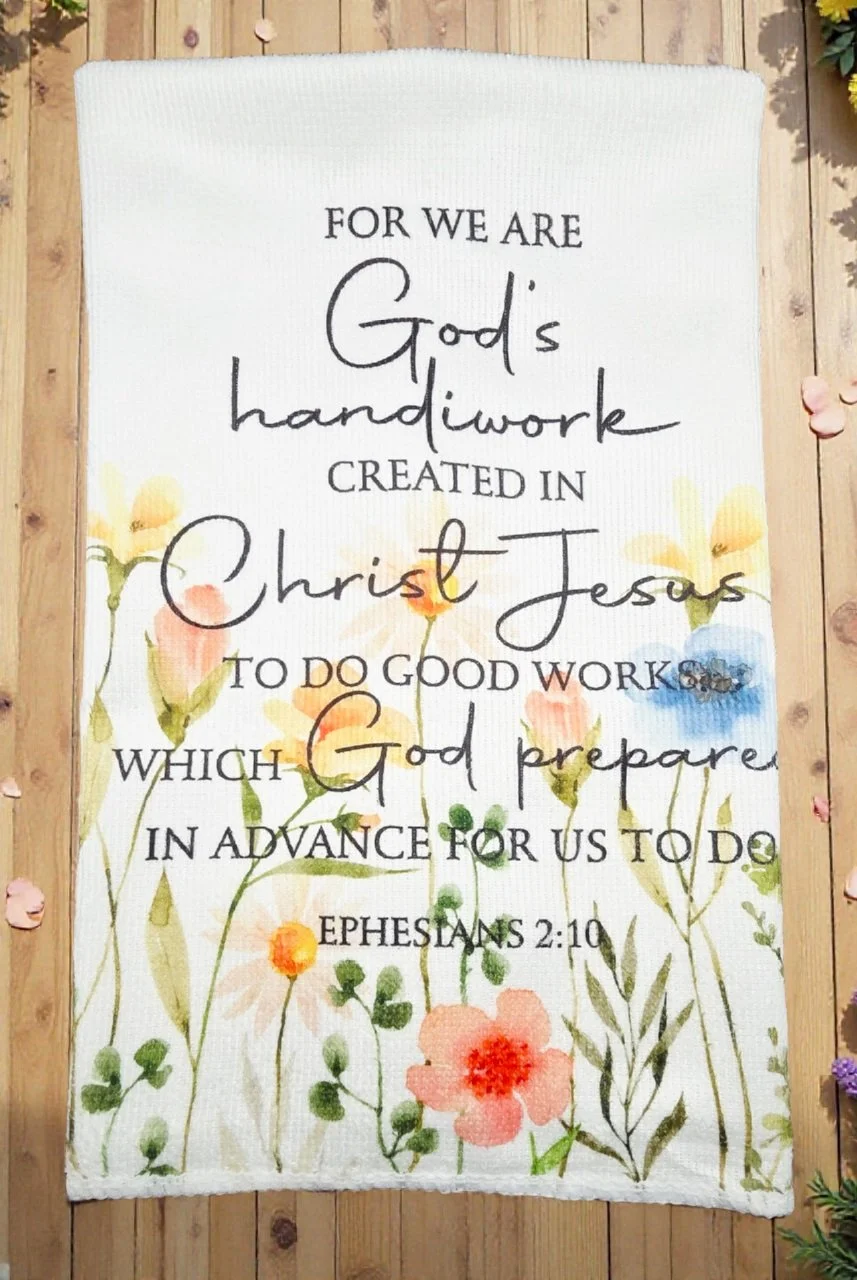 FOR WE ARE
God's
handiwork
CREATED IN
Christ Jesus
TO DO GOOD WORKS,
WHICH God prepare
IN ADVANCE FOR US TO DO
EPHESIANS 2:10